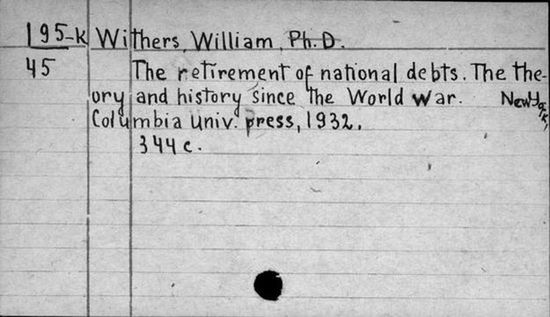 195-k Withers, William, Ph.D.
45 The retirement of national debts. The the-
ory and history since the World war. New York,
Columbia Univ. press, 1932.
344 c.